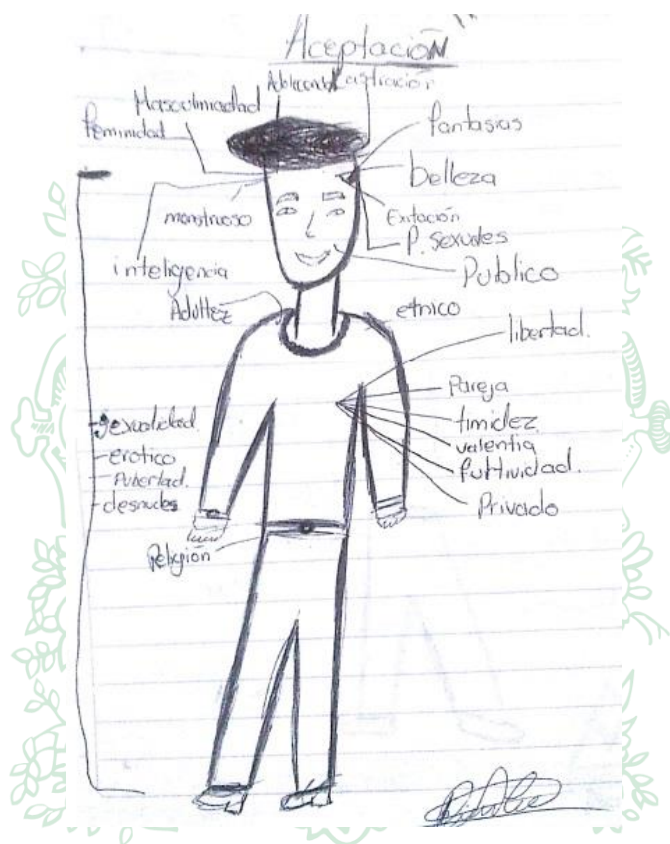 Aceptación
castración
Masculinidad
feminidad
fantasias
belleza
monstruoso
Exitación
P. sexuales
inteligencia
Publico
Adultez
etnico
libertad.
Pareja
timidez
valentia
Privado
sexualidad.
erotico
Pubertad.
desnudes
Religión